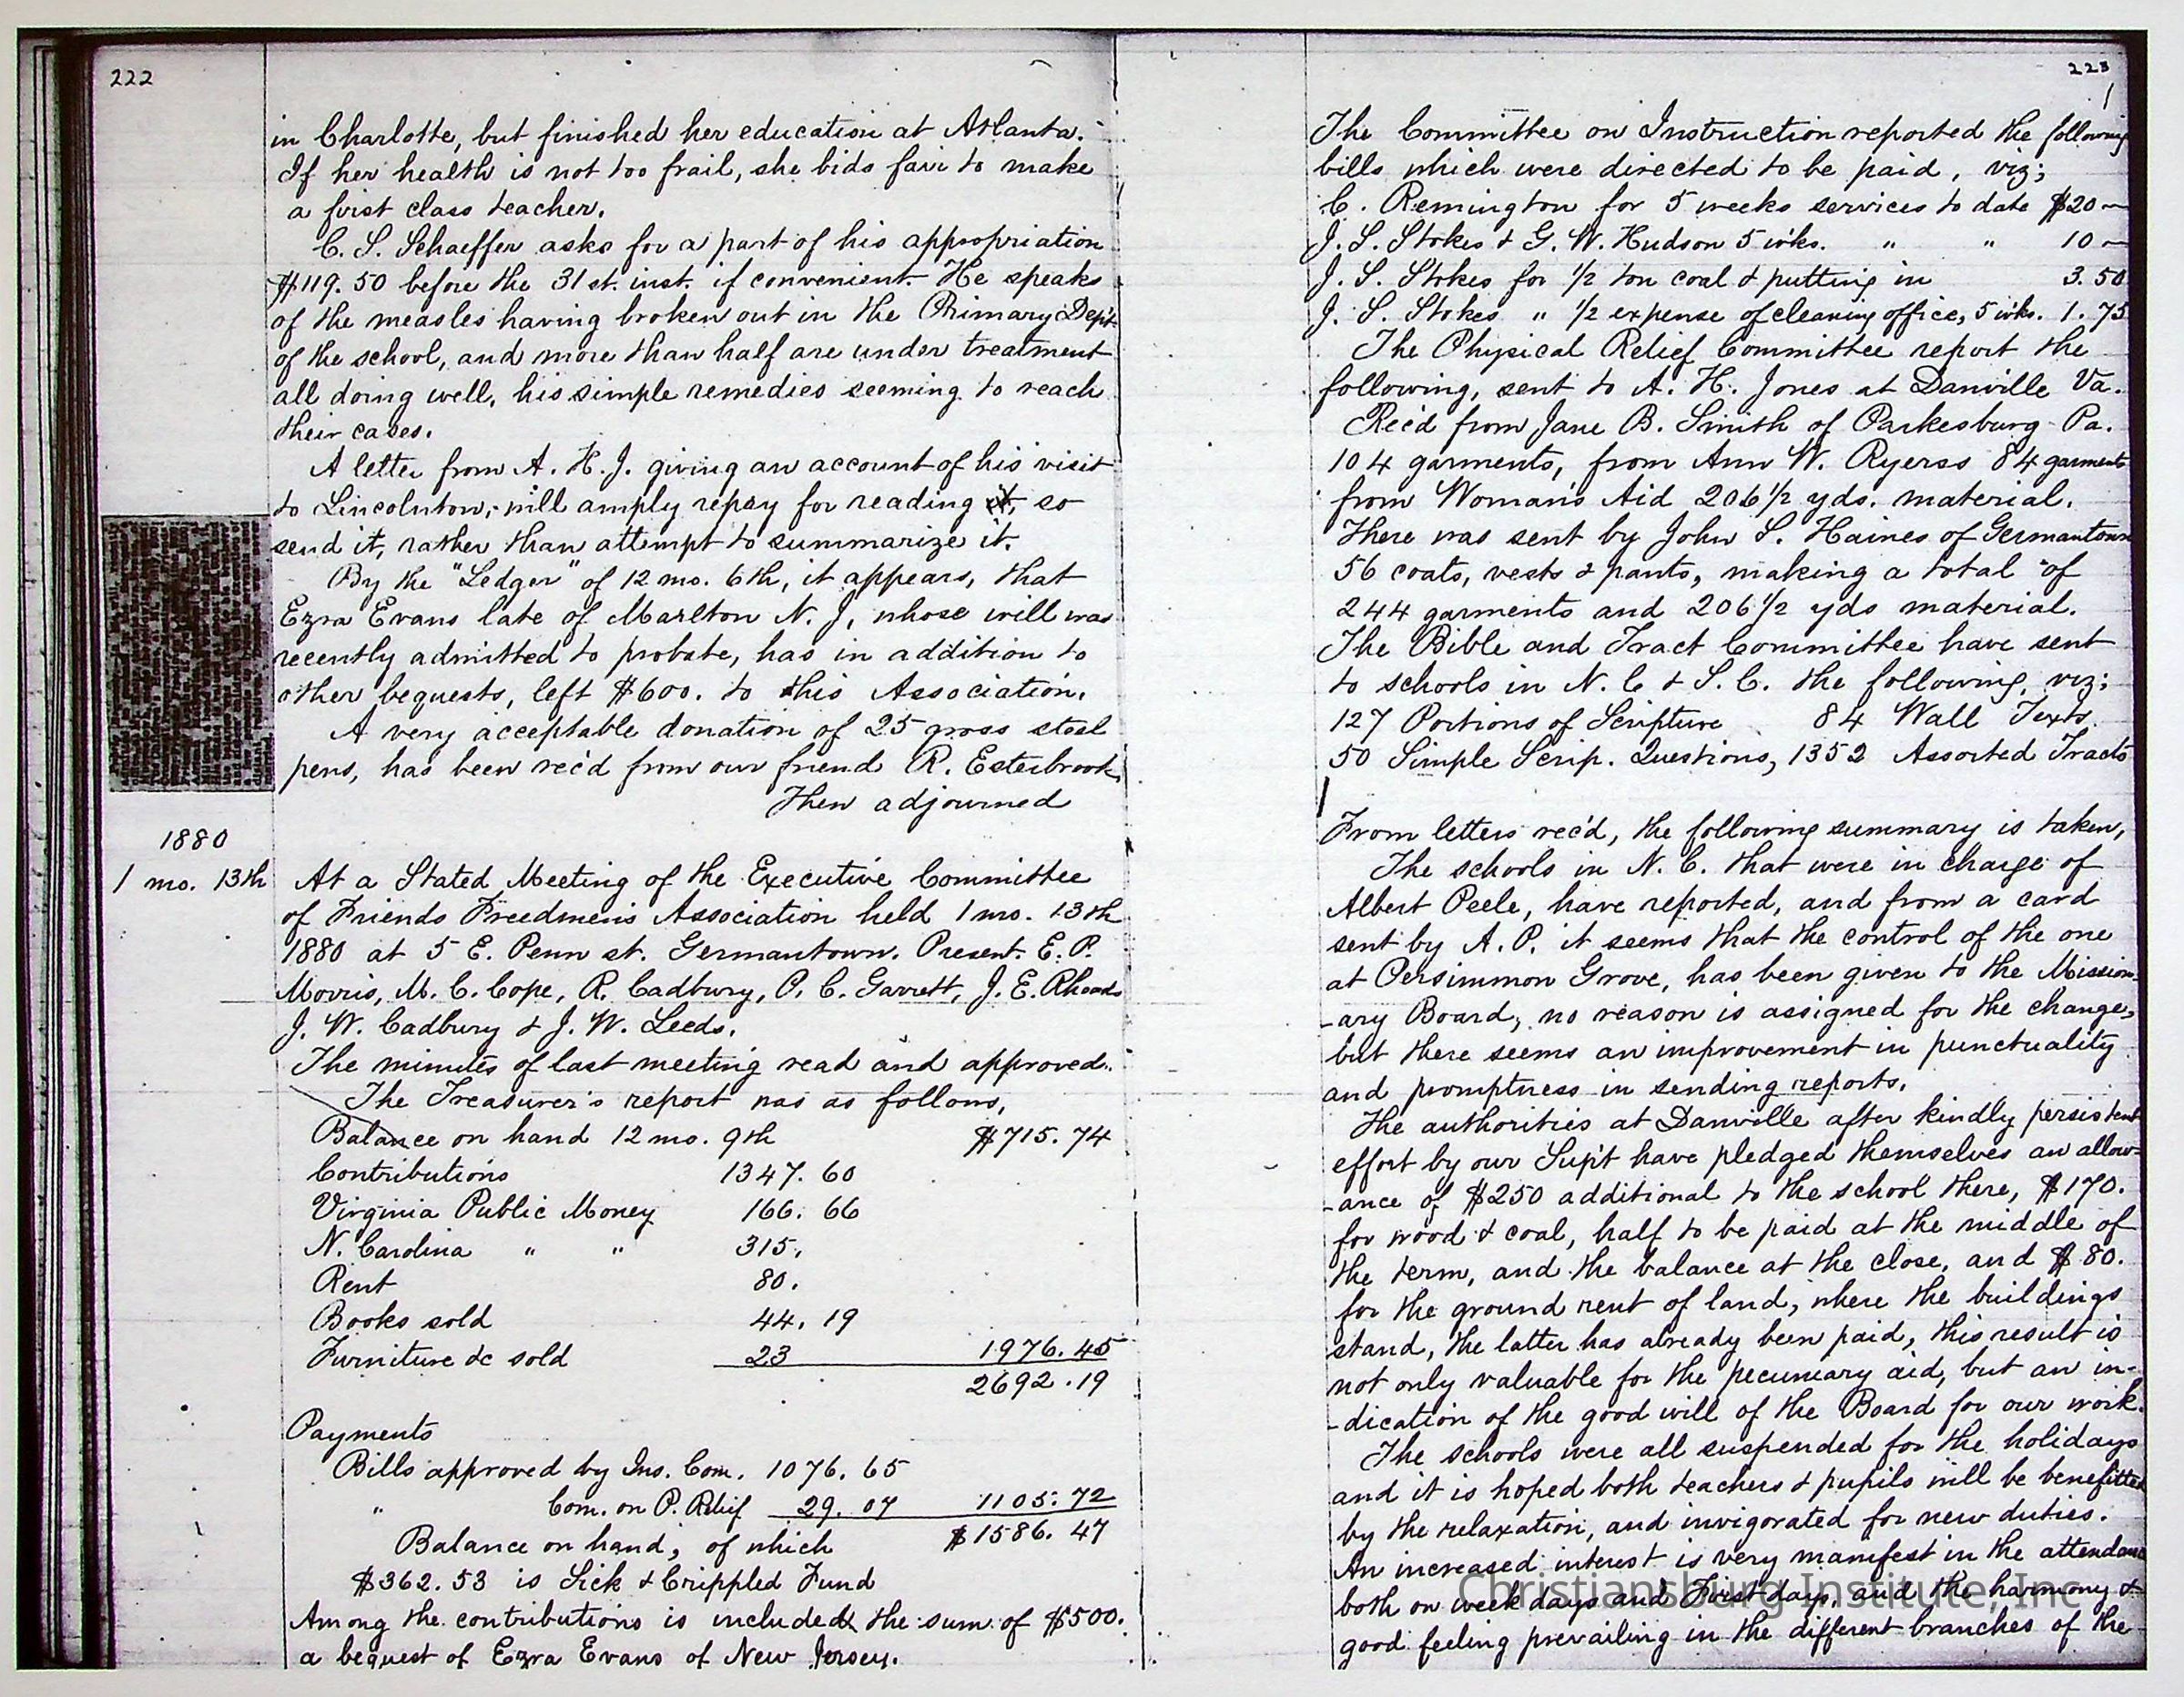 222
in Charlotte, but finished her education at Atlanta.
If her health is not too frail, she bids fair to make
a first class teacher.
C. S. Schaeffer asks for a part of his appropriation
$119.50 before the 31st. inst. if convenient. He speaks
of the measles having broken out in the Primary Dep't.
of the school, and more than half are under treatment
all doing well, his simple remedies seeming to reach
their cases.
A letter from A. H. J. giving an account of his visit
to Lincolnton, will amply repay for reading it, so
send it, rather than attempt to summarize it.
By the "Ledger" of 12 mo. 6th, it appears, that
Ezra Evans late of Marlton N. J, whose will was
recently admitted to probate, has in addition to
other bequests, left $600. to this Association.
A very acceptable donation of 25 gross steel
pens, has been rec'd from our friend R. Esterbrook
Then adjourned
1880
1 mo. 13th
At a Stated Meeting of the Executive Committee
of Friends Freedmen's Association held 1 mo. 13th
1880 at 5 E. Penn st. Germantown. Present. E. P.
Morris, M. C. Cope, R. Cadbury, P. C. Garrett, J. E. Rhoads
J. W. Cadbury & J. W. Leeds.
The minutes of last meeting read and approved.
The Treasurer's report was as follows,
Balance on hand 12 mo. 9th $715.74
Contributions 1347. 60
Virginia Public Money 166. 66
N. Carolina " " 315.
Rent 80.
Books sold 44. 19
Furniture &c sold 23 1976.45
2692.19
Payments
Bills approved by Ins. Com. 1076. 65
" Com. on P. Relief 29. 07 1105.72
Balance on hand, of which $1586. 47
$362.53 is Sick & Crippled Fund
Among the contributions is included the sum of $500.
a bequest of Ezra Evans of New Jersey.
223
The Committee on Instruction reported the following
bills which were directed to be paid, viz;
C. Remington for 5 weeks services to date $20 —
J. S. Stokes & G. W. Hudson 5 w'ks. " " 10 —
J. S. Stokes for 1/2 ton coal & putting in 3.50
J. S. Stokes " 1/2 expense of cleaning office, 5 w'ks. 1.75
The Physical Relief Committee report the
following, sent to A. H. Jones at Danville Va.
Rec'd from Jane B. Smith of Parkesburg Pa.
104 garments, from Ann W. Ryerss 84 garments
from Woman's Aid 206 1/2 yds. material.
There was sent by John S. Haines of Germantown
56 coats, vests & pants, making a total of
244 garments and 206 1/2 yds material.
The Bible and Tract Committee have sent
to schools in N. C & S. C. the following, viz;
127 Portions of Scripture 84 Wall Texts.
50 Simple Scrip. Questions, 1352 Assorted Tracts
From letters rec'd, the following summary is taken,
The schools in N. C. that were in charge of
Albert Peele, have reported, and from a card
sent by A. P. it seems that the control of the one
at Persimmon Grove, has been given to the Mission-
-ary Board, no reason is assigned for the change,
but there seems an improvement in punctuality
and promptness in sending reports.
The authorities at Danville after kindly persistent
effort by our Sup't have pledged themselves an allow-
-ance of $250 additional to the school there, $170.
for wood & coal, half to be paid at the middle of
the term, and the balance at the close, and $80.
for the ground rent of land, where the buildings
stand, the latter has already been paid, this result is
not only valuable for the pecuniary aid, but an in-
-dication of the good will of the Board for our work.
The schools were all suspended for the holidays
and it is hoped both teachers & pupils will be benefitted
by the relaxation, and invigorated for new duties.
An increased interest is very manifest in the attendance
both on week days and First days, and the harmony &
good feeling prevailing in the different branches of the
Christiansburg Institute, Inc